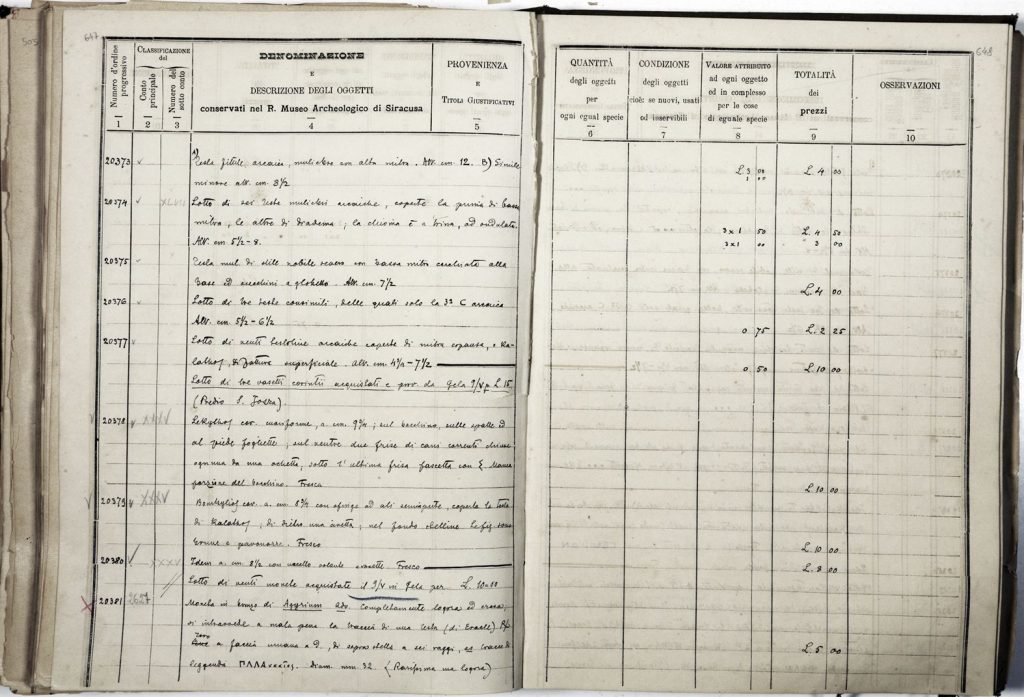 647
Numero d'ordine progressivo
CLASSIFICAZIONE del
Conto principale
Numero del sotto conto
DENOMINAZIONE
E
DESCRIZIONE DEGLI OGGETTI
conservati nel R. Museo Archeologico di Siracusa
PROVENIENZA
E
TITOLI GIUSTIFICATIVI
1 2 3 4 5
20373 Testa fittile arcaica, muliebre con alta mitra. Alt. cm. 12. B) Simile
minore alt. cm. 3½
20374 Lotto di sei teste muliebri arcaiche, coperte la prima di bassa
mitra, le altre di diadema; la chioma è a trina, ad ondulata.
Alt. cm 5½-8.
20375 Testa mul. di stile nobile severo con bassa mitra alla
base ed orecchini a globetto. Alt. cm. 7½
20376 Lotto di tre teste consimili, delle quali solo la 3ª C arcaica
Alt. cm. 5½-6½
20377 Lotto di venti testoline arcaiche coperte di mitra, o Ka-
lathos, superficiale. Alt. cm. 4¾-7½
Lotto di tre vasetti corintii acquistati e prov. da Gela 9/V p. L. 15
(Predio S.
20378 Lekythos cor. a. cm. 9¾; sul bocchino, sulle spalle ed
al piede fogliette; sul ventre due frise di cani correnti divise
ognuna da una, sotto l'ultima frisa fascetta con
del bocchino. Fresca
20379 XXXV cor. a. cm. 8¾ con sfinge ad ali semiaperte, coperta la testa
di Kalathos; di dietro una; nel fondo stelline
e pavonazze. Fresco
20380 XXXV Idem a. cm. 8½ con uccello volante e rosette Fresco
Lotto di venti monete acquistate il 9/V in Gela per L. 10.00
20381 2627 Moneta in bronzo di Agyrium. Completamente logora ed erosa;
si intravvede a mala pena la traccia di una testa (di Eracle) R/
Toro a faccia umana a D, di sopra stella a sei raggi, tracce di
leggenda ΠΑΛΑ. Diam. mm. 32. (Rarissima ma logora)
648
QUANTITÀ
degli oggetti
per
ogni egual specie
CONDIZIONE
degli oggetti
cioè: se nuovi, usati
od inservibili
VALORE ATTRIBUITO
ad ogni oggetto
od in complesso
per le cose
di eguale specie
TOTALITÀ
dei
prezzi
OSSERVAZIONI
6 7 8 9 10
L. 3 00 L. 4 00
1 00
3x1 50 L. 4 50
3x1 00 3 00
L. 4 00
0 75 L. 2 25
0 50 L. 10 00
L. 10 00
L. 10 00
L. 8 00
L. 5 00